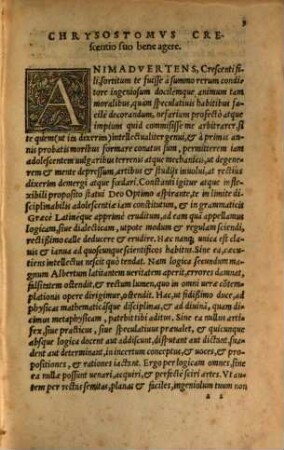 3
CHRYSOSTOMVS CRE-
scentio suo bene agere.
ANIMADVERTENS, Crescenti fi-
li, sortitum te fuisse à summo rerum condi-
tore ingeniosum docilemque animum tam
moralibus, quàm speculatiuis habitibus faci-
lè decorandum, nefarium profectò atque
impium quid commisisse me arbitrarer, si
te quem (ut ita dixerim) intellectualiter genui, & à primis an-
nis probatis moribus formare conatus sum, permitterem iam
adolescentem uulgaribus terrenis atque mechanicis, ut degene-
rem & mente depressum, artibus & studijs inuolui, at rectius
dixerim demergi atque fœdari. Constanti igitur atque in-
flexibili proposito statui Deo Optimo aspirante, te in limite di-
sciplinabilis adolescentiæ iam constitutum, & in grammaticis
Græcè Latineque apprimè eruditum, ad eam qui appellamus
logicam, siue dialecticam, utpote modum & regulam sciendi,
rectissimo calle deducere & erudire. Hæc nanque unica est cla-
uis & ianua ad quoscunque scientificos habitus. Sine ea cæcu-
tiens intellectus nescit quò tendat. Nam logica secundum ma-
gnum Albertum latitantem ueritatem aperit, errores damnat,
falsitatem ostendit, & rectum lumen, quo in omni uera contem-
plationis opere dirigimur, ostendit. Hæc, ut fidissimo duce, ad
physicas mathematicasque disciplinas, & ad diuinā, quam di-
cimus metaphysicam, patebit ibi aditus. Sine ea nullus arti-
fex, siue practicus, siue speculatiuus præualet, & quicunque
absque logica docent aut addiscunt, disputant aut student, fun-
dent aut determinant, in incertum conceptus, & uoces, & pro-
positiones, & rationes iactant. Ergo per logicam omnes, sine
ea nulla possunt uenari, acquiri, & perfectè sciri artes. Vt au-
tem per rectas semitas, planas & faciles, ingeniolum tuum non
a 2